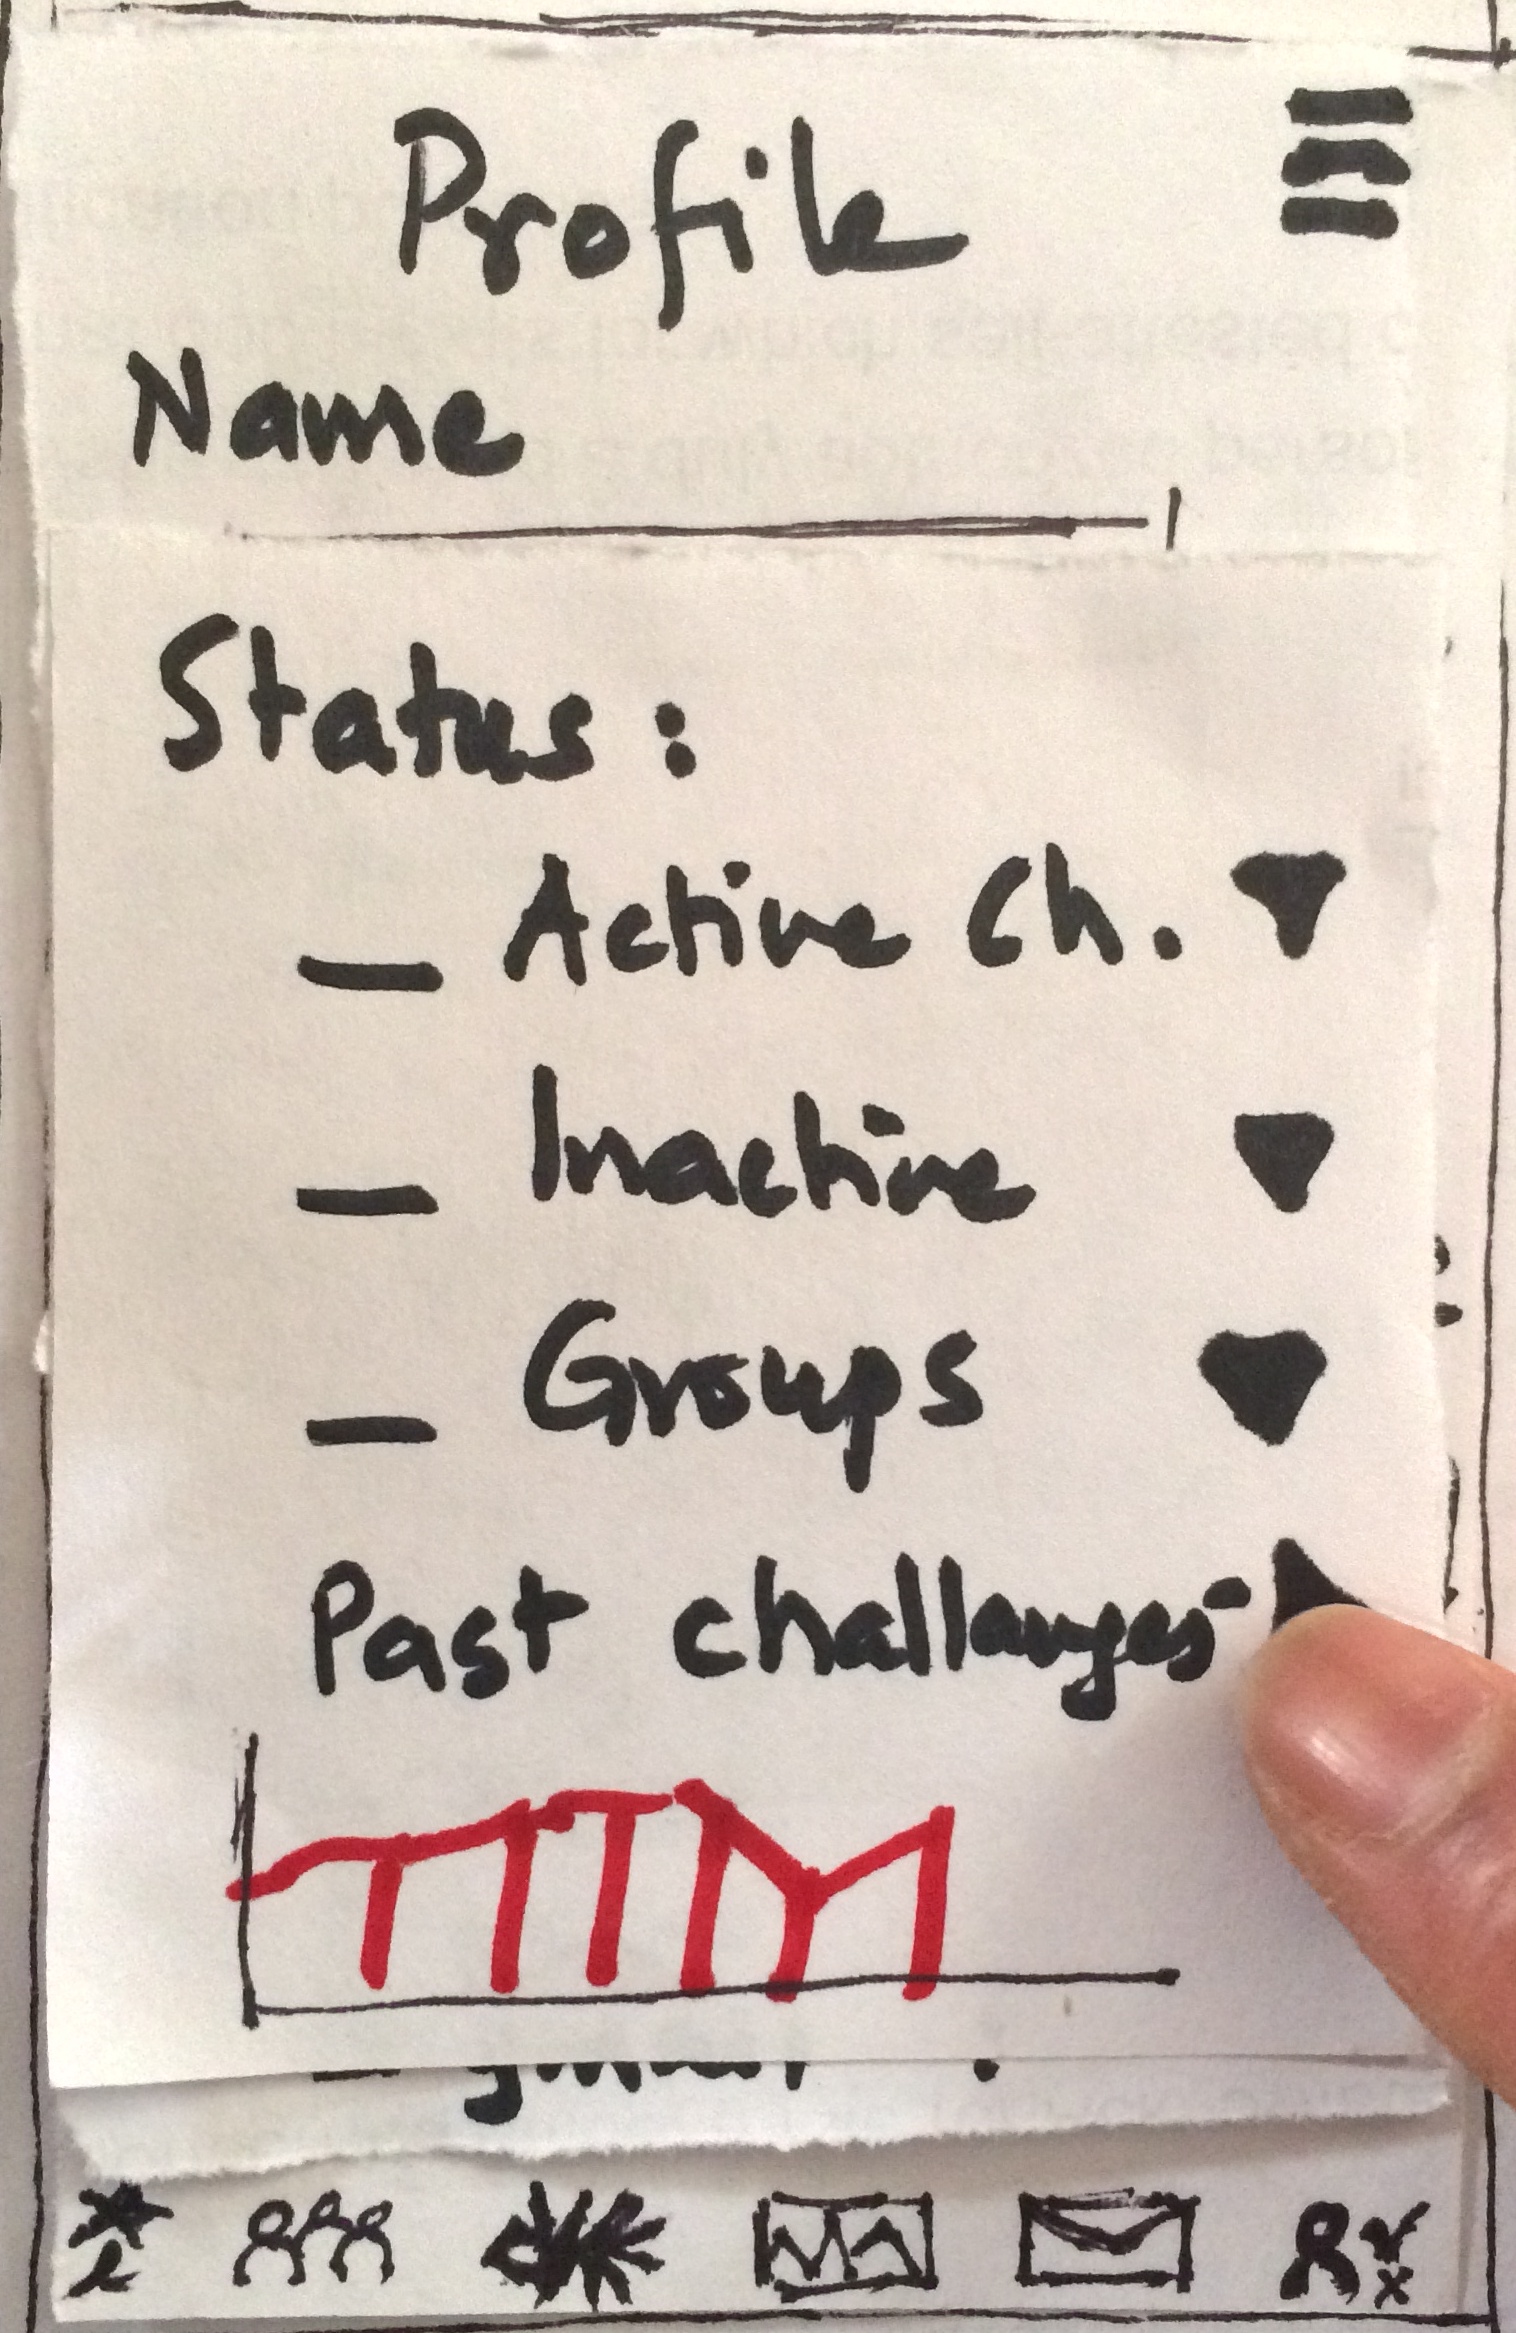 Profile
Name
Status:
– Active Ch.
– Inactive
– Groups
Past challenges